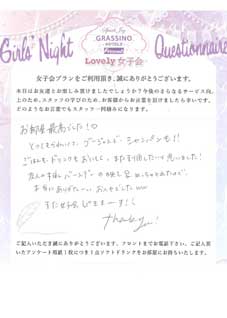 Girls' Night
GRASSINO
HOTELS
Questionnaire
Lovely 女子会
女子会プランをご利用頂き、誠にありがとうございます。
本日はお友達とお楽しみ頂けましたでしょうか?今後のさらなるサービス向
上のため、スタッフの学びのため、お客様からお言葉を頂けましたら幸いです。
どのようなお言葉でもスタッフ一同励みになります。
お部屋最高でした!♡
シャンパンも!!
ごはんも、ドリンクもおいしく、また利用したいと思いました!
本当にありがたい
また女子会しまーす!
thank you!
ご記入いただき誠にありがとうございます。フロントまでお電話下さい。ご記入頂
いたアンケート用紙1枚につき1点ソフトドリンクをお部屋にお持ちいたします。